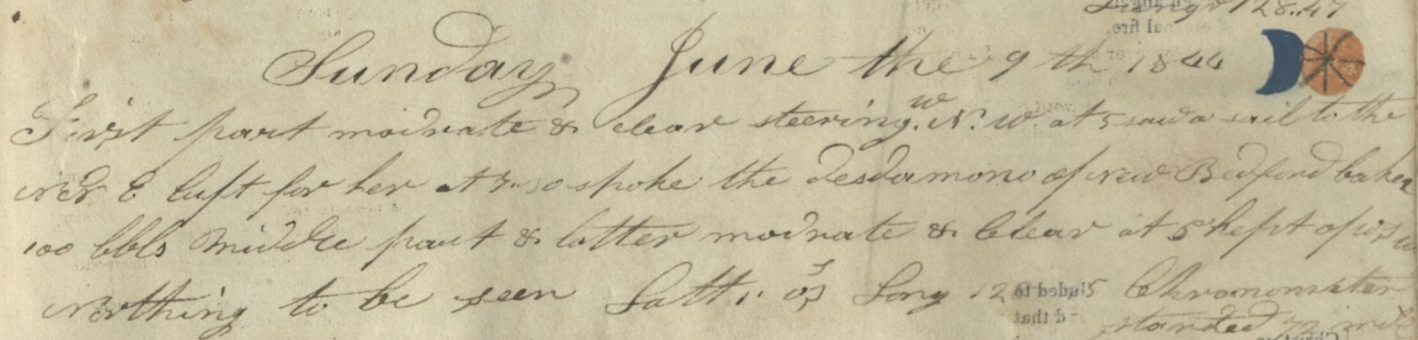 Sunday June the 9th 1844
First part modrate & clear steering W. N. W at 5 saw a sail to the
N & E luft for her at 7.30 spoke the desdamono of new Bedford baker
100 bbls Middle part & latter modrate & Clear at 5 kept of W S W
Nothing to be seen Latt 1. 07 S Long 12 Chronomater
standed